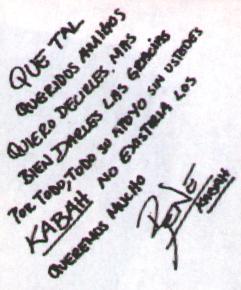 QUE TAL
QUERIDOS AMIGOS
QUIERO DECIRLES MAS
BIEN DARLES LAS GRACIAS
POR TODO, TODO SU APOYO SIN USTEDES
KABAH NO EXISTIRIA LOS
QUEREMOS MUCHO
RENE
KABAH